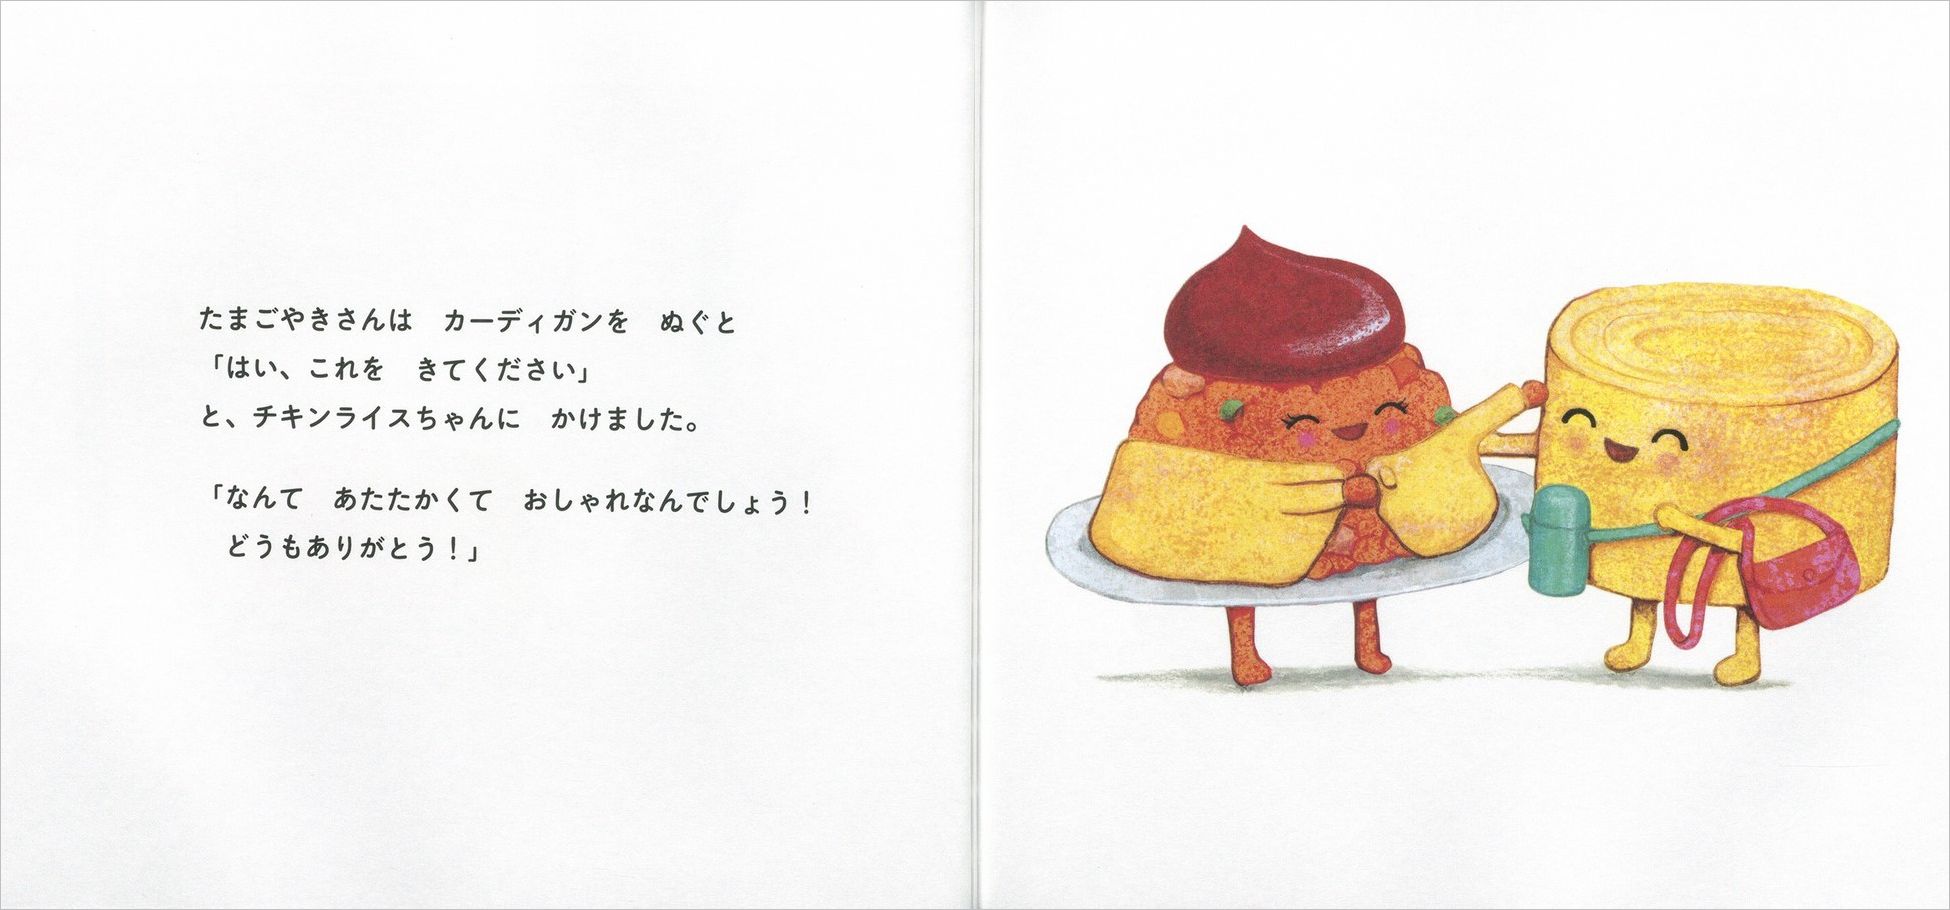 たまごやきさんは　カーディガンを　ぬぐと
「はい、これを　きてください」
と、チキンライスちゃんに　かけました。
「なんて　あたたかくて　おしゃれなんでしょう！
　どうもありがとう！」